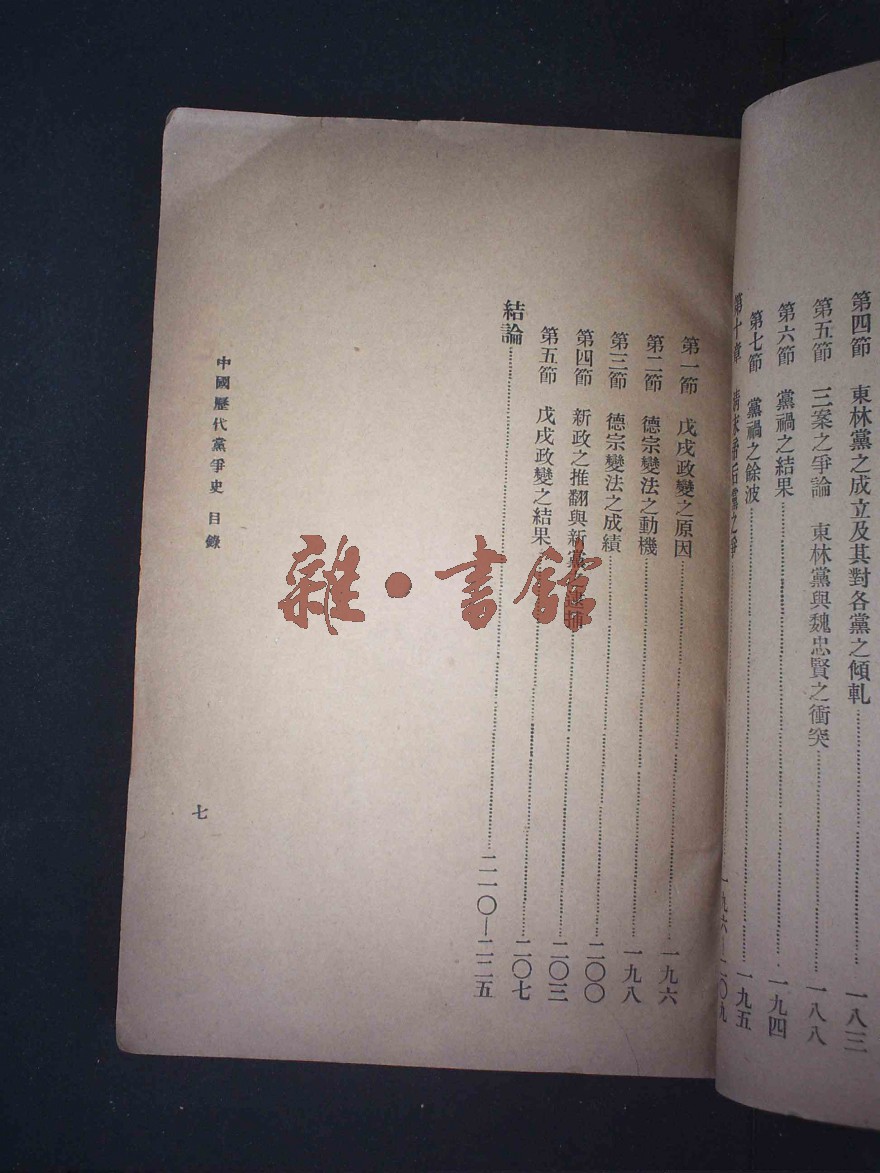 第四節　東林黨之成立及其對各黨之傾軋……一八三
第五節　三案之爭論　東林黨與魏忠賢之衝突……一八八
第六節　黨禍之結果……一九四
第七節　黨禍之餘波……一九五
第十章　清末帝后黨之爭……一九六—二〇九
第一節　戊戌政變之原因……一九六
第二節　德宗變法之動機……一九八
第三節　德宗變法之成績……二〇〇
第四節　新政之推翻與新黨之逮捕……二〇三
第五節　戊戌政變之結果……二〇七
結論……二一〇—二二五
中國歷代黨爭史　目錄
七
雜·書館